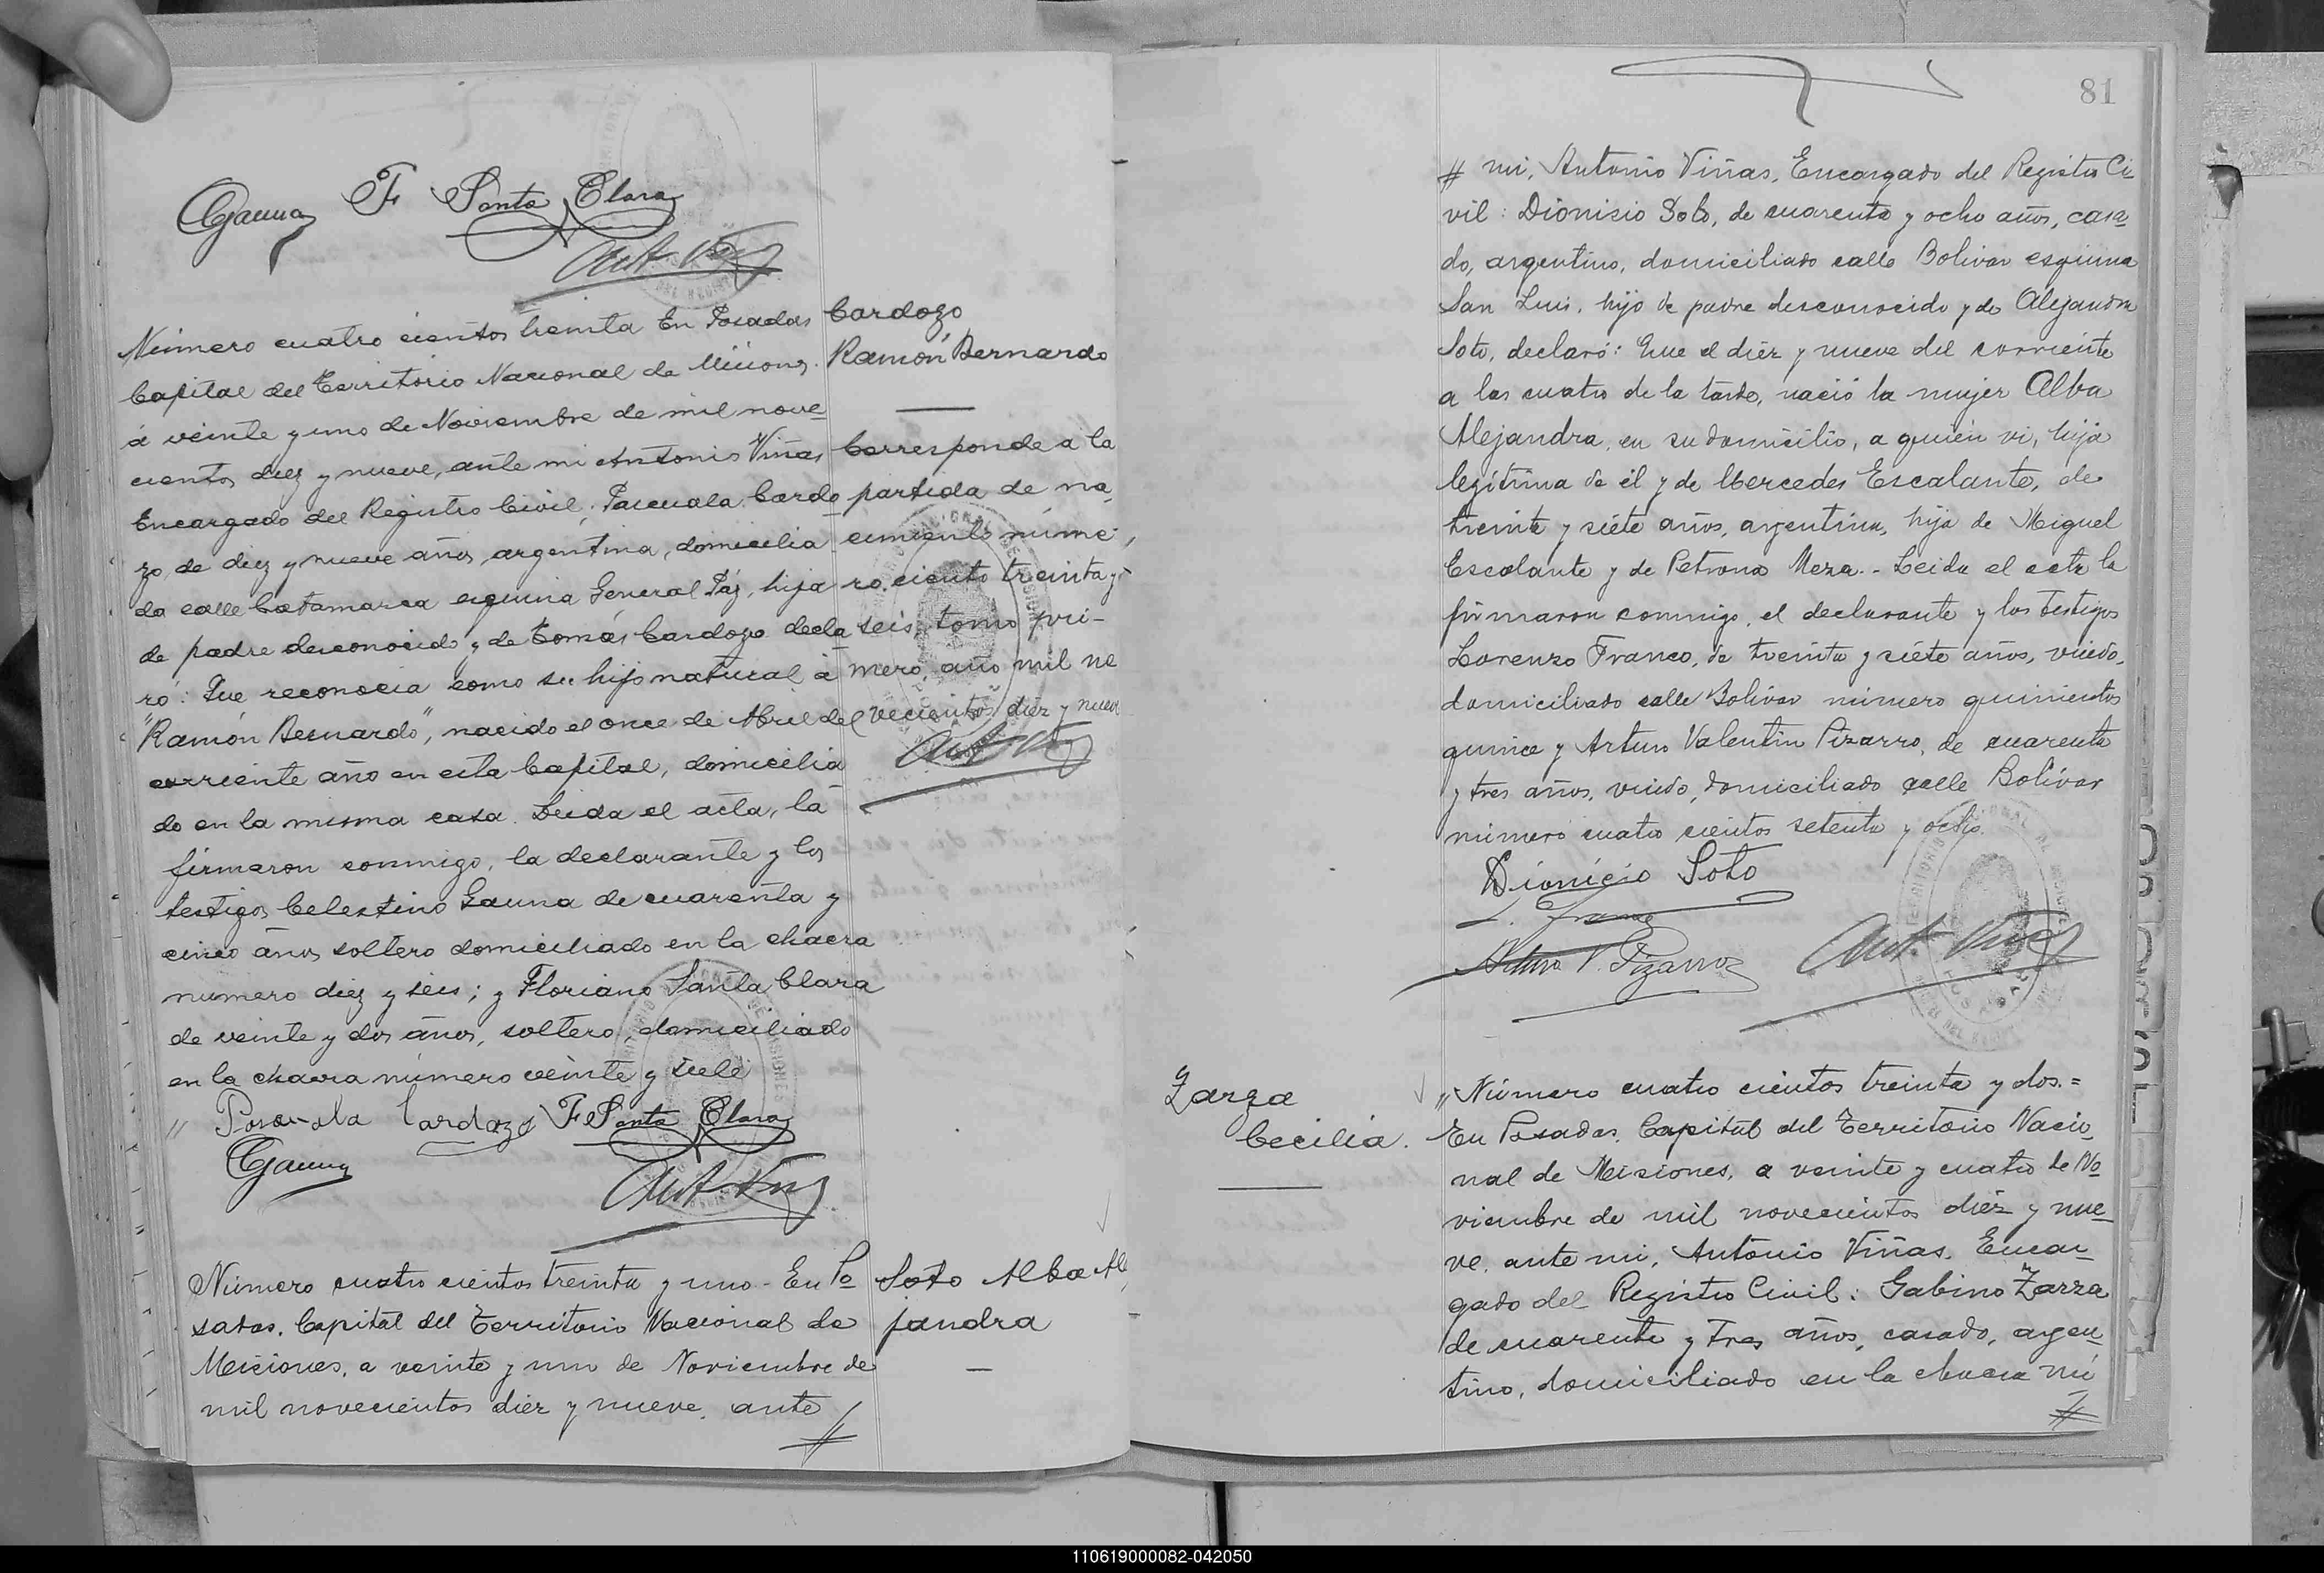 CGauna F Santa Clara
Ant Viñas
Número cuatro cientos treinta En Posadas
Capital del Territorio Nacional de Misiones.
á veinte y uno de Noviembre de mil nove
cientos diez y nueve, ante mi Antonio Viñas
Encargado del Registro Civil; Pascuala Cardo
zo, de diez y nueve años, argentina, domicilia
da calle Catamarca esquina General Páz, hija
de padre desconocido y de Tomás Cardozo decla
ró: Que reconocia como su hijo natural á
"Ramón Bernardo", nacido el once de Abril del
corriente año en esta Capital, domicilia
do en la misma casa. Leida el acta, la
firmaron conmigo, la declarante y los
testigos Celestino Gauna de cuarenta y
cinco años soltero domiciliado en la chacra
numero diez y seis; y Floriano Santa Clara
de veinte y dos años, soltero, domiciliado
en la chacra número veinte y siete
" Pascuala Cardozo F Santa Clara
CGauna
Ant Viñas
Cardozo
Ramón Bernardo
Corresponde á la
partida de na
cimiento núme
ro ciento treinta y
seis, tomo pri-
mero, año mil no
vecientos diez y nueve
Ant Viñas
Número cuatro cientos treinta y uno - En Po
sadas, Capital del Territorio Nacional de
Misiones, a veinte y uno de Noviembre de
mil novecientos diez y nueve, ante
#
Soto Alba Ale
jandra
81
# mi, Antonio Viñas, Encargado del Registro Ci
vil: Dionisio Soto, de cuarenta y ocho años, casa
do, argentino, domiciliado calle Bolivar esquina
San Luis, hijo de padre desconocido y de Alejandra
Soto, declaró: Que el diéz y nueve del corriente
a las cuatro de la tarde, nació la mujer Alba
Alejandra, en su domicilio, a quien vi, hija
legítima de él y de Mercedes Escalante, de
treinta y siéte años, argentina, hija de Miguel
Escalante y de Petrona Meza. - Leida el acta la
firmaron conmigo, el declarante y los testigos
Lorenzo Franco, de treinta y siéte años, viudo,
domiciliado calle Bolivar número quinientos
quince y Arturo Valentin Pizarro, de cuarenta
y tres años, viudo, domiciliado calle Bolívar
número cuatro cientos setenta y ocho.
Dionicio Soto
L. Franco
Arturo V. Pizarro
Ant. Viñas
Zarza
Cecilia.
" Número cuatro cientos treinta y dos.=
En Posadas, Capital del Territorio Nacio
nal de Misiones, a veinte y cuatro de No
viembre de mil novecientos diéz y nue
ve, ante mi, Antonio Viñas, Encar
gado del Registro Civil: Gabino Zarza
de cuarenta y tres años, casado, argen
tino, domiciliado en la chacra nú
#
110619000082-042050